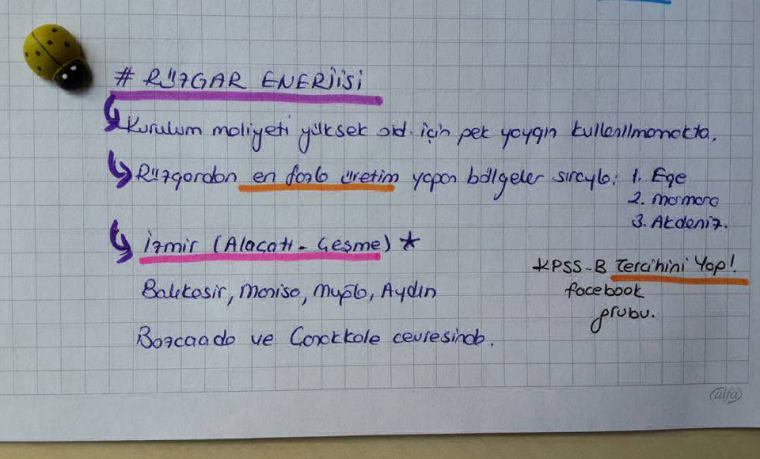 # RÜZGAR ENERJİSİ
Kurulum maliyeti yüksek old. için pek yaygın kullanılmamakta.
Rüzgardan en fazla üretim yapan bölgeler sırayla: 1. Ege
2. Marmara
3. Akdeniz.
İzmir (Alaçatı - Çeşme) ★
Balıkesir, Manisa, Muğla, Aydın
Bozcaada ve Çanakkale çevresinde.
KPSS-B Tercihini Yap!
facebook
grubu.
alfa